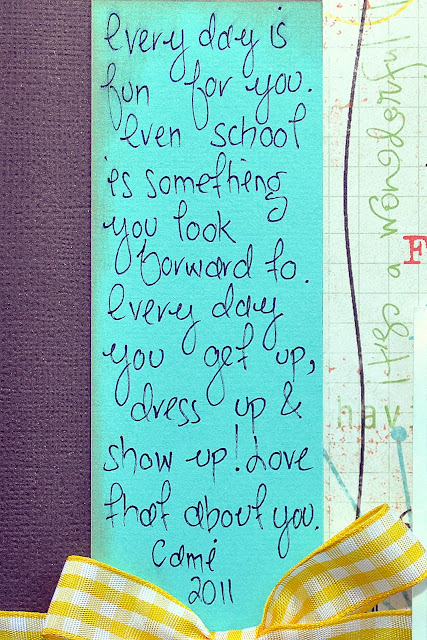 every day is
fun for you.
even school
is something
you look
forward to.
every day
you get up,
dress up &
show up! Love
that about you.
Cami
2011
It's a wonderful
F
hav